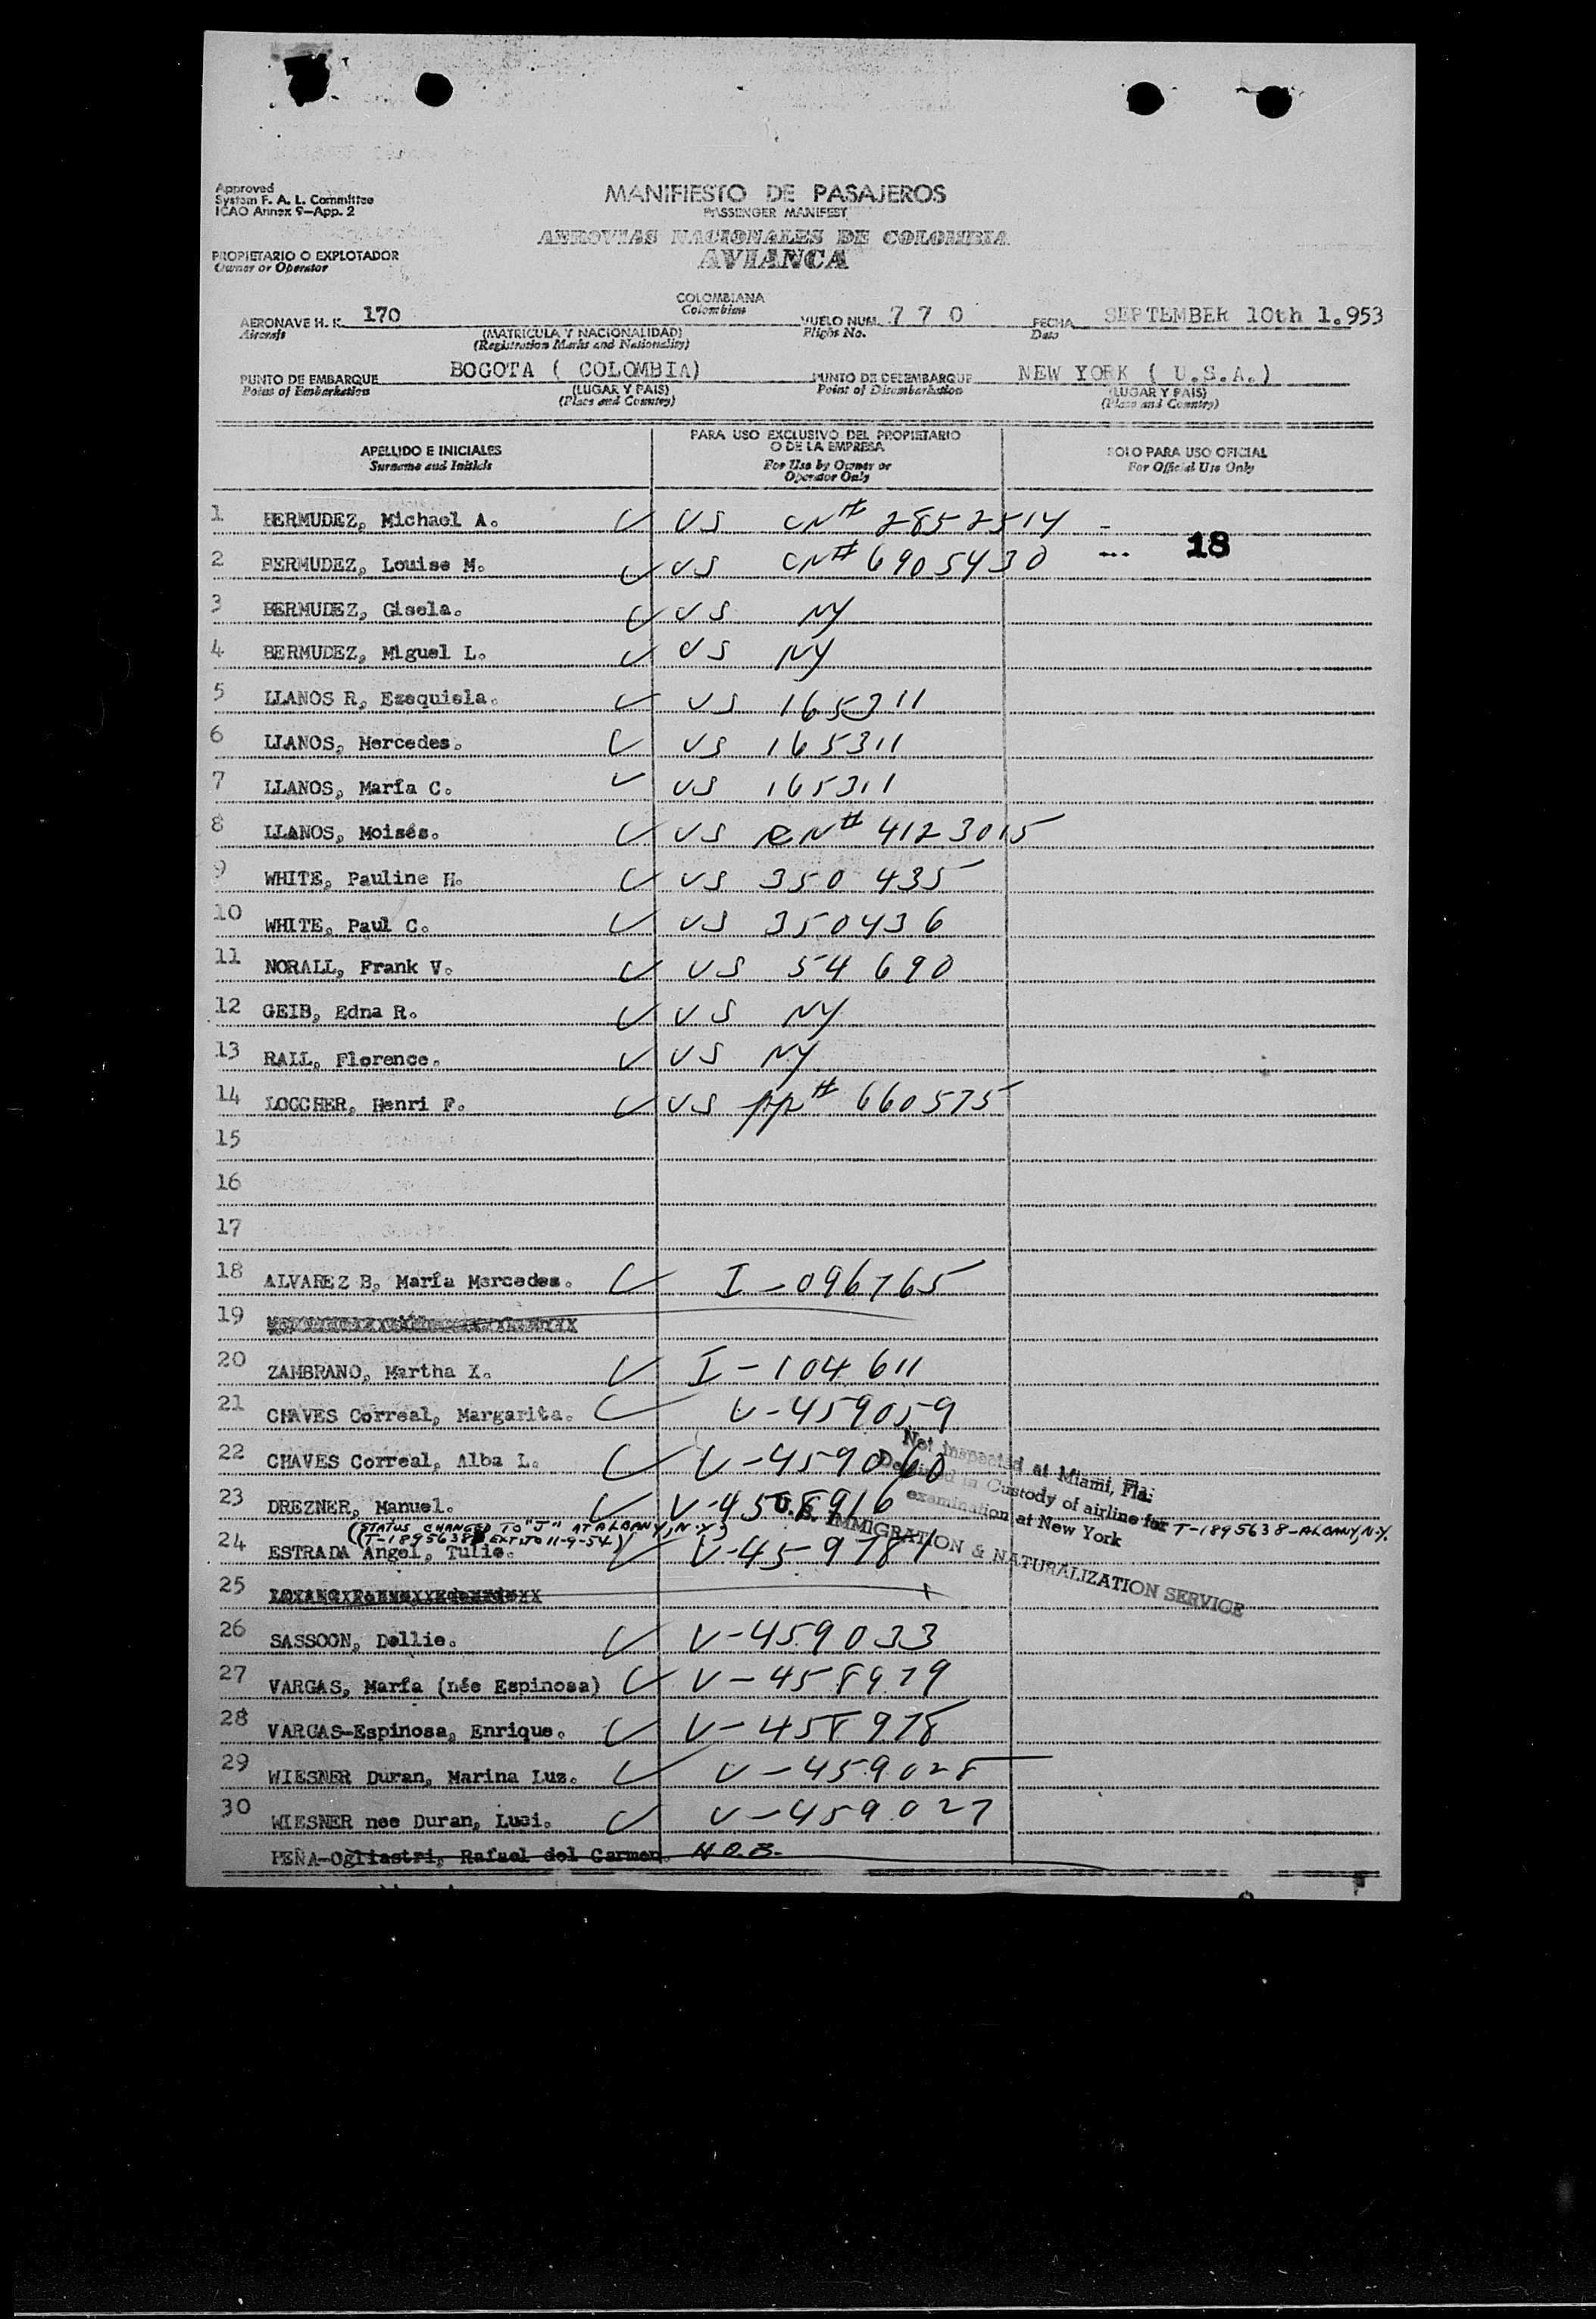 Approved
System F. A. L. Committee
ICAO Annex 9—App. 2
MANIFIESTO DE PASAJEROS
PASSENGER MANIFEST
AEROVIAS NACIONALES DE COLOMBIA
AVIANCA
PROPIETARIO O EXPLOTADOR
Owner or Operator
COLOMBIANA
Colombian
AERONAVE H. K. 170 VUELO NUM. 7 7 0 FECHA SEPTEMBER 10th 1.953
Aircraft (MATRICULA Y NACIONALIDAD) Flight No. Date
(Registration Marks and Nationality)
PUNTO DE EMBARQUE BOGOTA ( COLOMBIA) PUNTO DE DESEMBARQUE NEW YORK ( U.S.A.)
Point of Embarkation (LUGAR Y PAIS) Point of Disembarkation (LUGAR Y PAIS)
(Place and Country) (Place and Country)
APELLIDO E INICIALES PARA USO EXCLUSIVO DEL PROPIETARIO O DE LA EMPRESA SOLO PARA USO OFICIAL
Surname and Initials For Use by Owner or Operator Only For Official Use Only
1 BERMUDEZ, Michael A. ✓ US CN# 2852514 -
18
2 BERMUDEZ, Louise M. ✓ US CN# 6905430 ...
3 BERMUDEZ, Gisela. ✓ US NY
4 BERMUDEZ, Miguel L. ✓ US NY
5 LLANOS R, Ezequiela. ✓ US 165311
6 LLANOS, Mercedes. ✓ US 165311
7 LLANOS, María C. ✓ US 165311
8 LLANOS, Moisés. ✓ US CN# 4123015
9 WHITE, Pauline H. ✓ US 350 435
10 WHITE, Paul C. ✓ US 350436
11 NORALL, Frank V. ✓ US 54 690
12 GEIB, Edna R. ✓ US NY
13 RALL, Florence. ✓ US NY
14 LOCCHER, Henri F. ✓ US pp# 660575
15
16
17
18 ALVAREZ B, María Mercedes. ✓ I-096765
19
20 ZAMBRANO, Martha X. ✓ I-104611
21 CHAVES Correal, Margarita. ✓ V-459059
22 CHAVES Correal, Alba L. ✓ V-459060
Not inspected at Miami, Fla.
Destined in Custody of airline for
examination at New York
U.S. IMMIGRATION & NATURALIZATION SERVICE
23 DREZNER, Manuel. ✓ V-458916
T-1895638-ALBANY,N.Y.
(STATUS CHANGED TO "J" AT ALBANY, N.Y.)
(T-1895638 EXT. TO 11-9-54)
24 ESTRADA Angel, Tulio. ✓ V-459781
25
26 SASSOON, Dellie. ✓ V-459033
27 VARGAS, María (née Espinosa) ✓ V-458979
28 VARGAS-Espinosa, Enrique. ✓ V-458978
29 WIESNER Duran, Marina Luz. ✓ V-459028
30 WIESNER nee Duran, Luci. ✓ V-459027
PEÑA-Ogliastri, Rafael del Carmen. N.O.B.